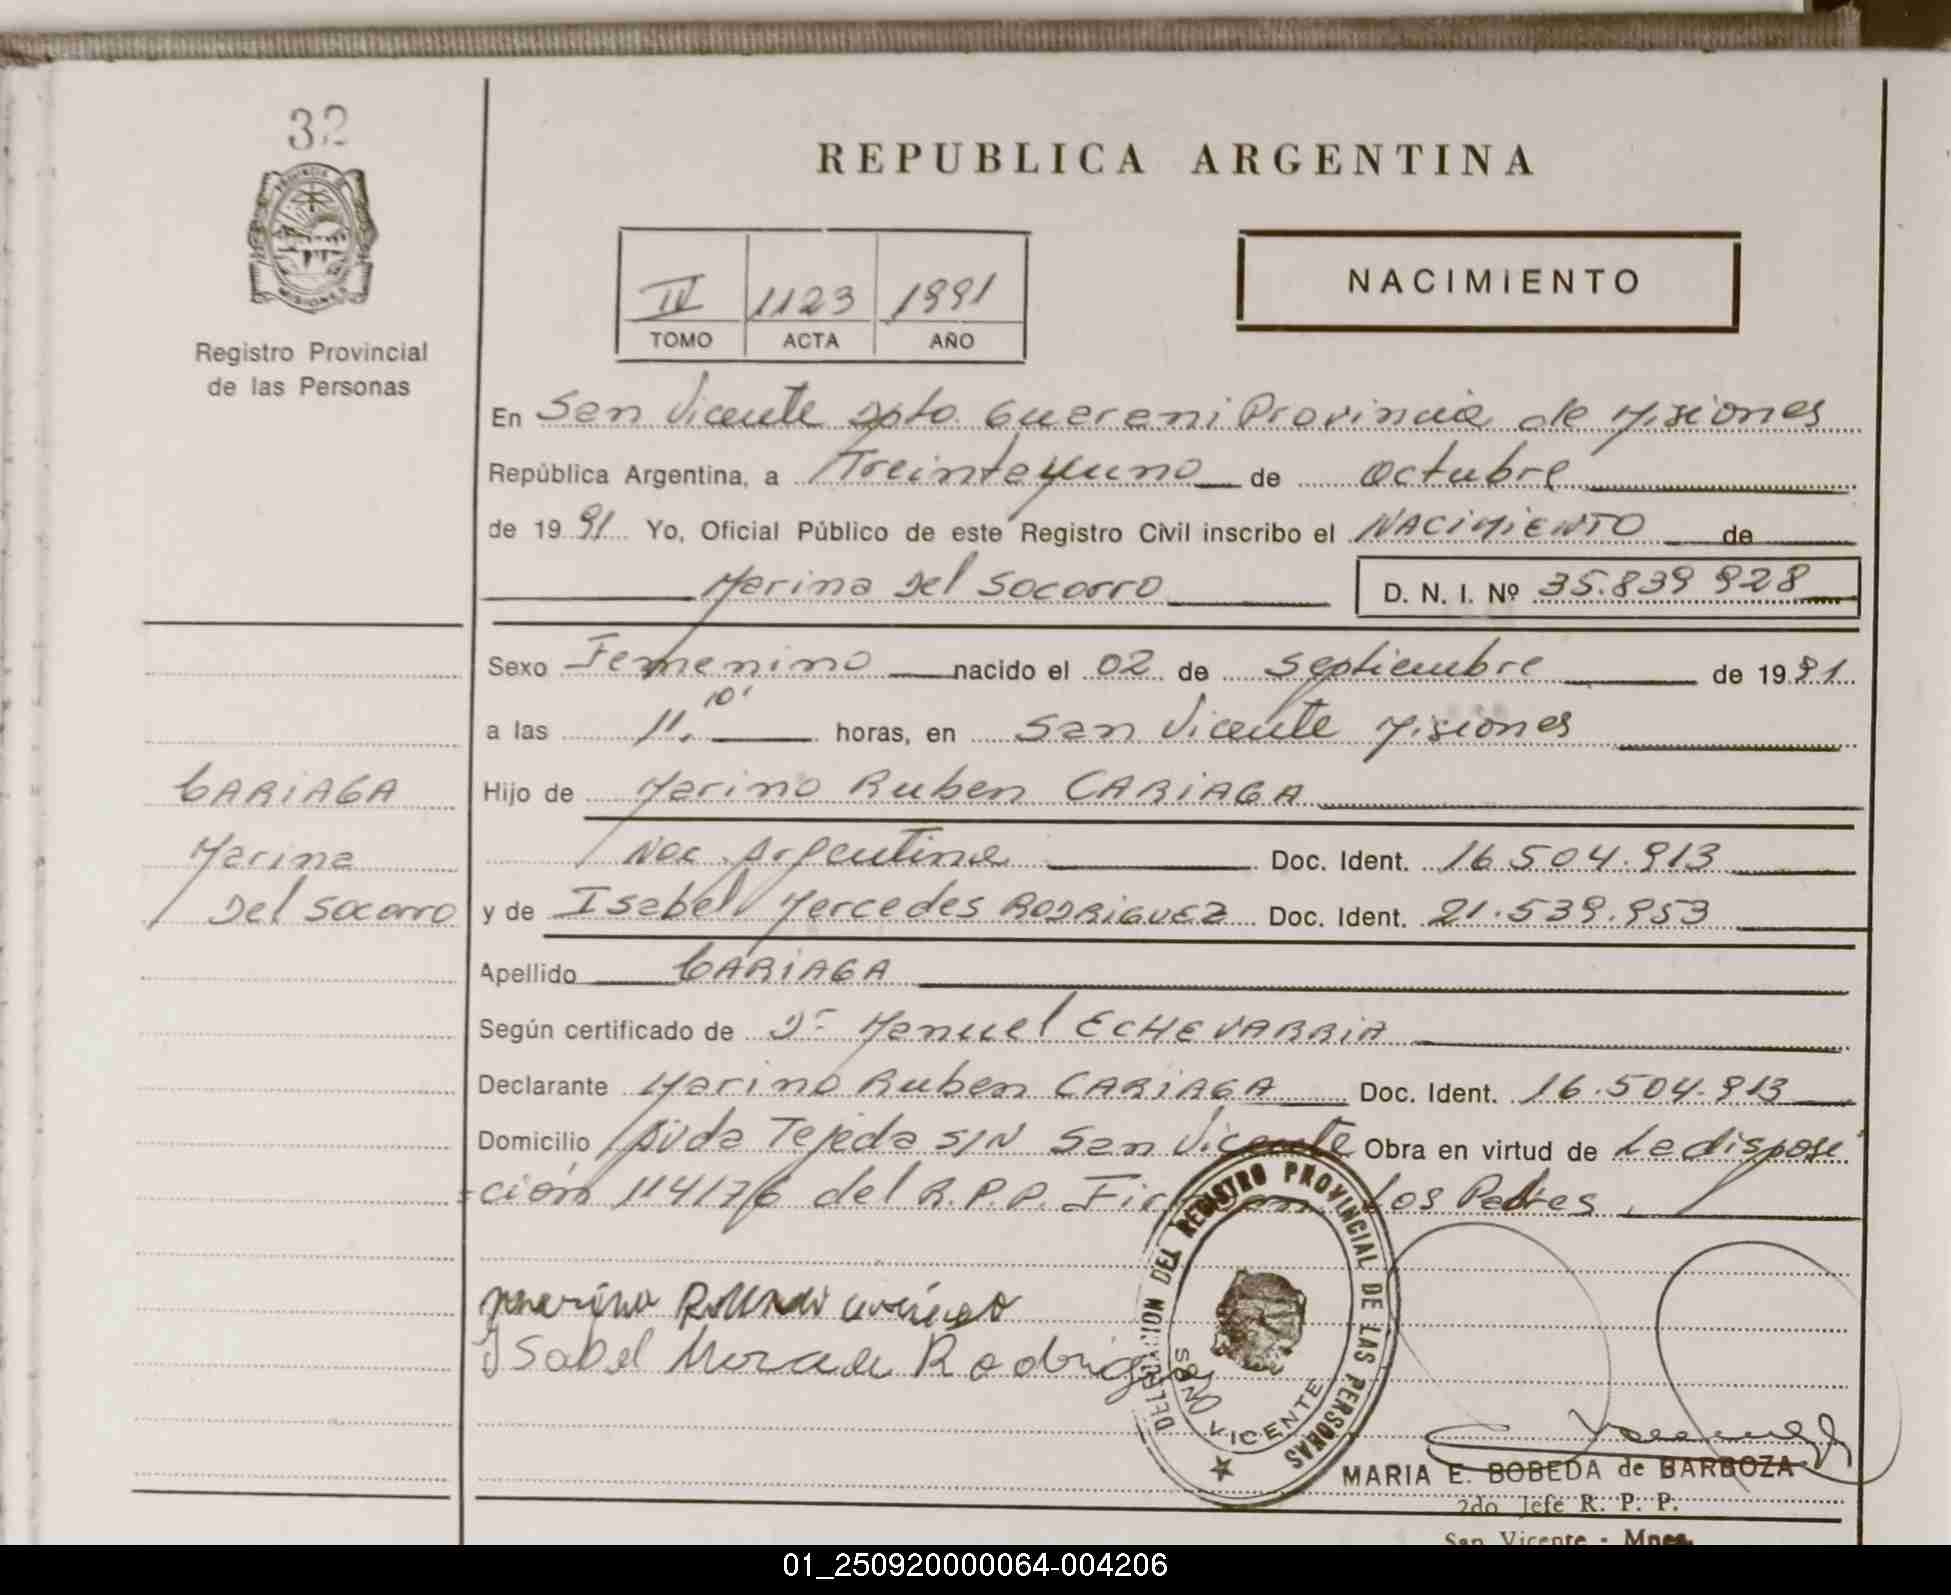 32
PROVINCIA DE
MISIONES
Registro Provincial
de las Personas
REPUBLICA ARGENTINA
IV 1123 1991
TOMO ACTA AÑO
NACIMIENTO
En San Vicente Dpto. Guarani Provincia de Misiones
República Argentina, a Treinta y uno de Octubre
de 1991 Yo, Oficial Público de este Registro Civil inscribo el NACIMIENTO de
Marina Del Socorro D. N. I. Nº 35.839 928
Sexo Femenino nacido el 02 de Septiembre de 1991
a las 11. 10' horas, en San Vicente Misiones
Hijo de Marino Ruben CARIAGA
Nac. Argentina Doc. Ident. 16.504.913
y de Isabel Mercedes RODRIGUEZ Doc. Ident. 21.539.953
Apellido CARIAGA
Según certificado de Dr Manuel ECHEVARRIA
Declarante Marino Ruben CARIAGA Doc. Ident. 16.504.913
Domicilio Avda Tejeda S/N San Vicente Obra en virtud de La disposi
=ción 114176 del R.P.P. Firman Los Padres.
CARIAGA
Marina
Del Socorro
Isabel Rodrigu
DELEGACION DEL REGISTRO PROVINCIAL DE LAS PERSONAS
VICENTE
MARIA E. BOBEDA de BARBOZA
2do Jefe R. P. P.
San Vicente - Mnes.
01_250920000064-004206